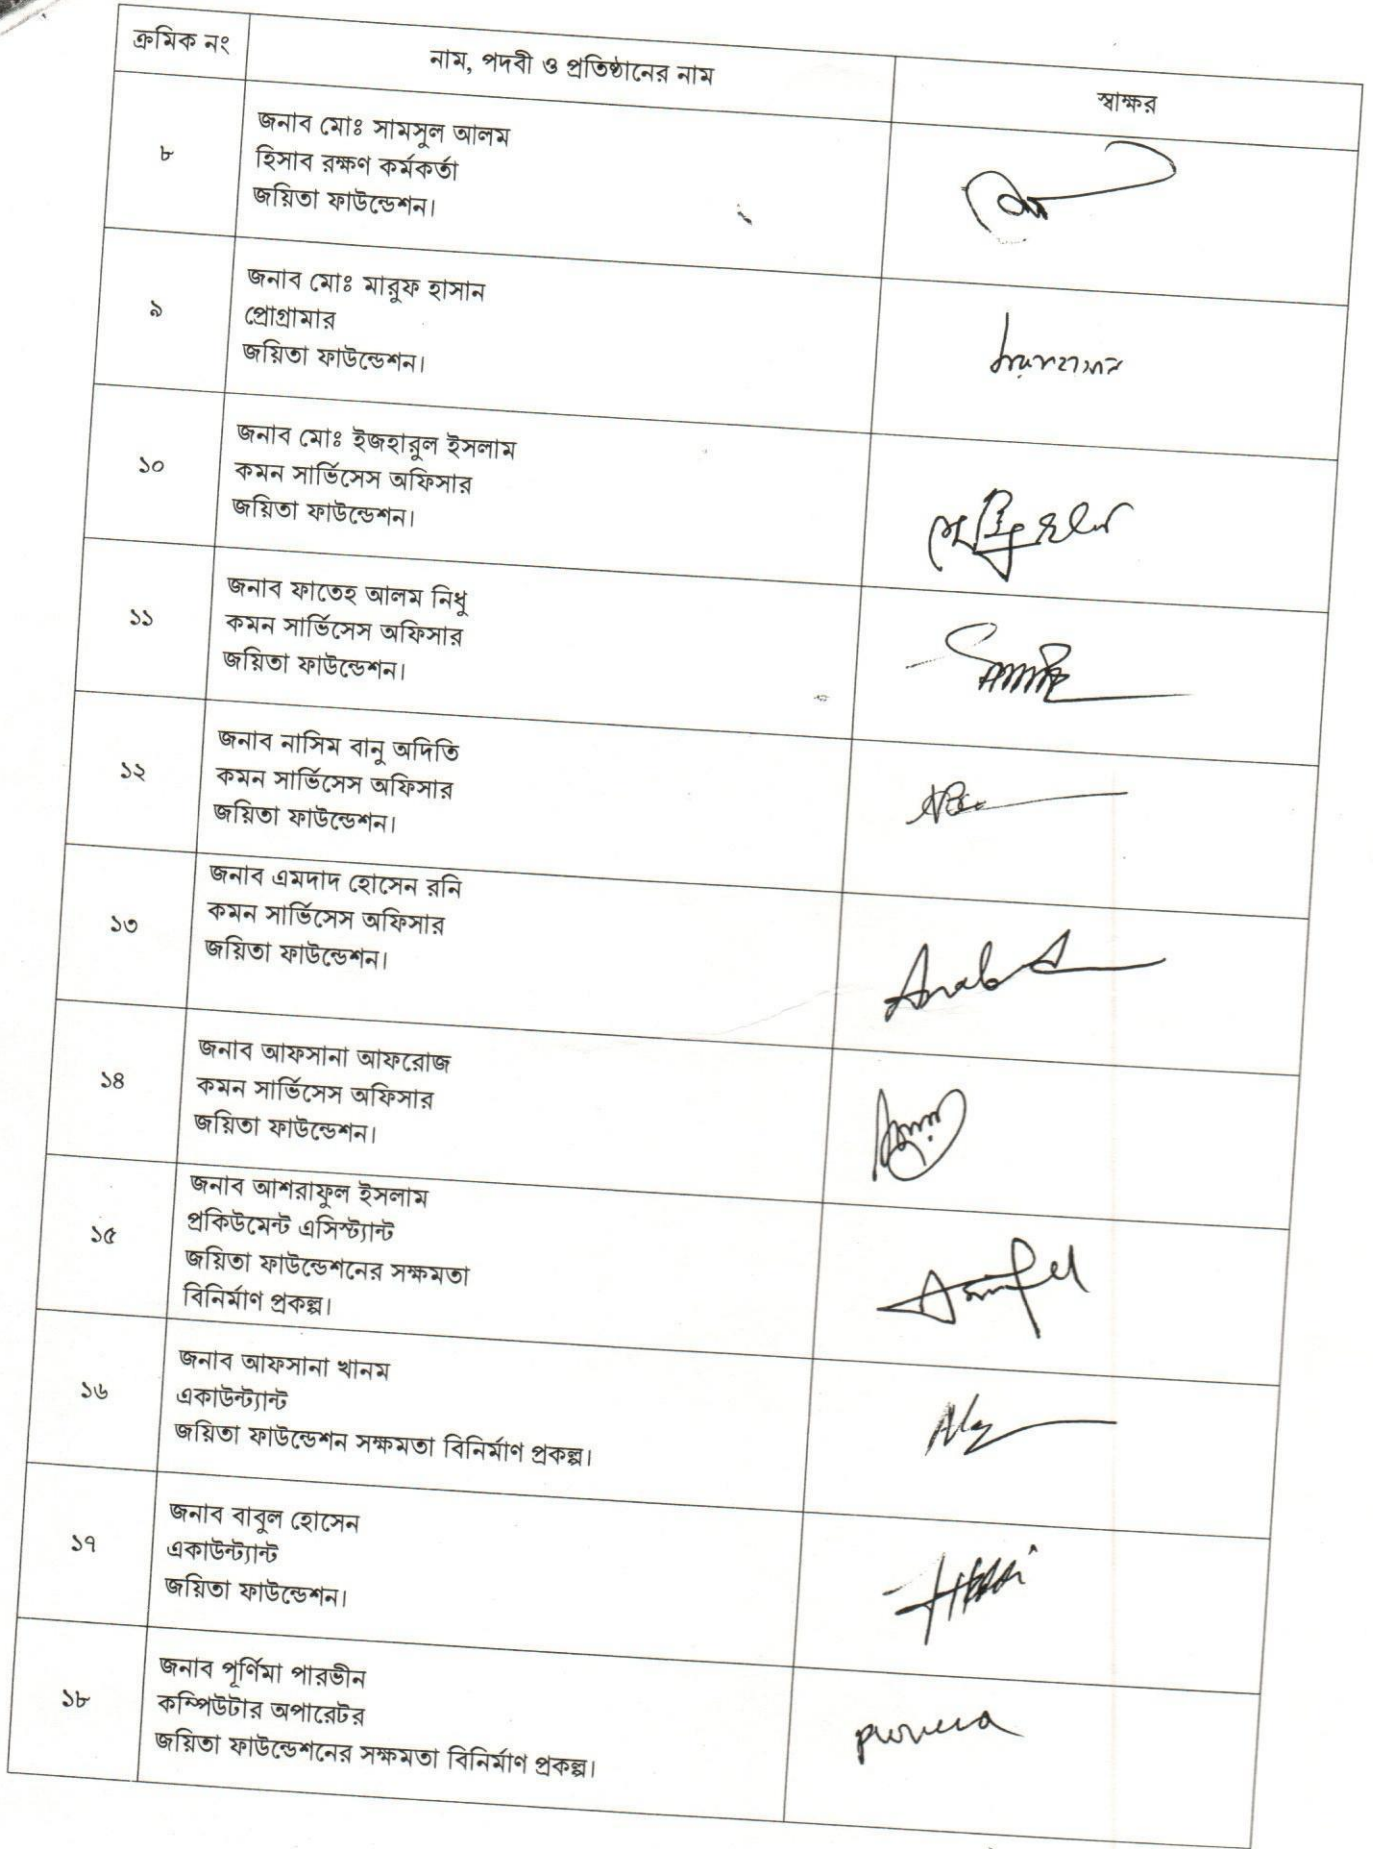 ক্রমিক নং
নাম, পদবী ও প্রতিষ্ঠানের নাম
স্বাক্ষর
৮
জনাব মোঃ সামসুল আলম
হিসাব রক্ষণ কর্মকর্তা
জয়িতা ফাউন্ডেশন।
৯
জনাব মোঃ মারুফ হাসান
প্রোগ্রামার
জয়িতা ফাউন্ডেশন।
১০
জনাব মোঃ ইজহারুল ইসলাম
কমন সার্ভিসেস অফিসার
জয়িতা ফাউন্ডেশন।
১১
জনাব ফাতেহ আলম নিধু
কমন সার্ভিসেস অফিসার
জয়িতা ফাউন্ডেশন।
১২
জনাব নাসিম বানু অদিতি
কমন সার্ভিসেস অফিসার
জয়িতা ফাউন্ডেশন।
১৩
জনাব এমদাদ হোসেন রনি
কমন সার্ভিসেস অফিসার
জয়িতা ফাউন্ডেশন।
১৪
জনাব আফসানা আফরোজ
কমন সার্ভিসেস অফিসার
জয়িতা ফাউন্ডেশন।
১৫
জনাব আশরাফুল ইসলাম
প্রকিউমেন্ট এসিস্ট্যান্ট
জয়িতা ফাউন্ডেশনের সক্ষমতা
বিনির্মাণ প্রকল্প।
১৬
জনাব আফসানা খানম
একাউন্ট্যান্ট
জয়িতা ফাউন্ডেশন সক্ষমতা বিনির্মাণ প্রকল্প।
১৭
জনাব বাবুল হোসেন
একাউন্ট্যান্ট
জয়িতা ফাউন্ডেশন।
১৮
জনাব পূর্ণিমা পারভীন
কম্পিউটার অপারেটর
জয়িতা ফাউন্ডেশনের সক্ষমতা বিনির্মাণ প্রকল্প।